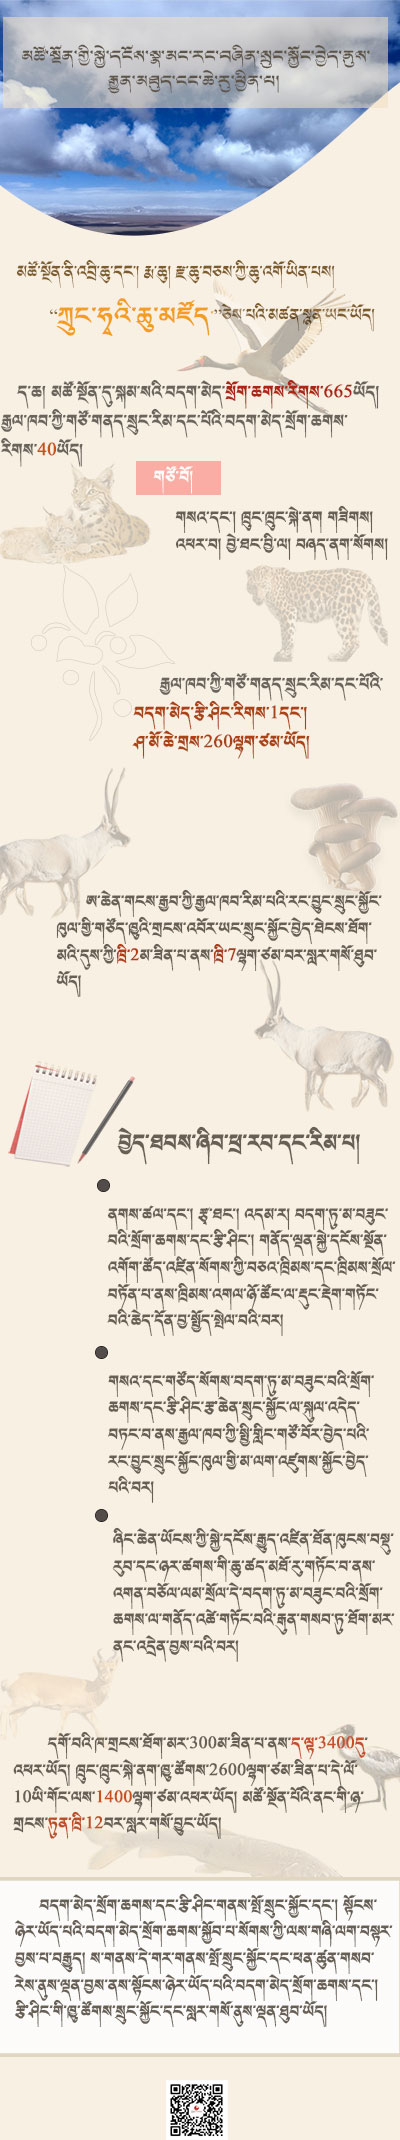 མཚོ་སྔོན་གྱི་སྐྱེ་དངོས་སྣ་མང་རང་བཞིན་སྲུང་སྐྱོབ་བྱེད་ནུས་
རྒྱུན་མཐུད་དང་ཆེ་རུ་ཕྱིན་པ།
མཚོ་སྔོན་ནི་འབྲི་ཆུ་དང་། རྨ་ཆུ། རྫ་ཆུ་བཅས་ཀྱི་ཆུ་འགོ་ཡིན་པས།
“ཀྲུང་ཧྭའི་ཆུ་མཛོད་”ཅེས་པའི་མཚན་སྙན་ཡང་ཡོད།
ད་ཆ། མཚོ་སྔོན་དུ་སྐམ་སའི་བདག་མེད་སྲོག་ཆགས་རིགས་665ཡོད།
རྒྱལ་ཁབ་ཀྱི་གཙོ་གནད་སྲུང་རིམ་དང་པོའི་བདག་མེད་སྲོག་ཆགས་
རིགས་40ཡོད།
གཙོ་བོ།
གསའ་དང་། ཁྲུང་ཁྲུང་སྐེ་ནག གཟིགས།
འཕར་བ། བྱེ་ཐང་བྱི་ལ། བཞད་ནག་སོགས།
རྒྱལ་ཁབ་ཀྱི་གཙོ་གནད་སྲུང་རིམ་དང་པོའི་
བདག་མེད་རྩི་ཤིང་རིགས་1དང་།
ཤ་མོ་ཆེ་གྲས་260ལྷག་ཙམ་ཡོད།
ཨ་ཆེན་གངས་རྒྱབ་ཀྱི་རྒྱལ་ཁབ་རིམ་པའི་རང་བྱུང་སྲུང་སྐྱོང་
ཁུལ་གྱི་གཙོད་ཁྱུའི་གྲངས་འབོར་ཡང་སྲུང་སྐྱོང་བྱེད་ཐེངས་ཐོག་
མའི་དུས་ཀྱི་ཁྲི་2མ་ཟིན་པ་ནས་ཁྲི་7ལྷག་ཙམ་བར་སླར་གསོ་ཐུབ་
ཡོད།
བྱེད་ཐབས་ཞིབ་ཕྲ་རབ་དང་རིམ་པ།
ནགས་ཚལ་དང་། རྩྭ་ཐང་། འདམ་ར། བདག་ཏུ་མ་བཟུང་
བའི་སྲོག་ཆགས་དང་རྩི་ཤིང་། གནོད་ལྡན་སྐྱེ་དངོས་སྔོན་
འགོག་ཚོད་འཛིན་སོགས་ཀྱི་བཅའ་ཁྲིམས་དང་ཁྲིམས་སྲོལ་
བཏོན་པ་ནས་ཁྲིམས་འགལ་ཉོ་ཚོང་ལ་རྡུང་རྡེག་གཏོང་
བའི་ཆེད་དོན་བྱ་སྤྱོད་སྤེལ་བའི་བར།
གསའ་དང་གཙོད་སོགས་བདག་ཏུ་མ་བཟུང་བའི་སྲོག་
ཆགས་དང་རྩི་ཤིང་རྩ་ཆེན་སྲུང་སྐྱོང་ལ་སྐུལ་འདེད་
བཏང་བ་ནས་རྒྱལ་ཁབ་ཀྱི་སྤྱི་གླིང་གཙོ་བོར་བྱེད་པའི་
རང་བྱུང་སྲུང་སྐྱོང་ཁུལ་གྱི་མ་ལག་འཛུགས་སྐྱོང་བྱེད་
པའི་བར།
ཞིང་ཆེན་ཡོངས་ཀྱི་སྐྱེ་དངོས་རྒྱུད་འཛིན་ཐོན་ཁུངས་བསྡུ་
རུབ་དང་ཉར་ཚགས་གི་ཆུ་ཚད་མཐོ་རུ་གཏོང་བ་ནས་
འགན་བཅོལ་ལམ་སྲོལ་དེ་བདག་ཏུ་མ་བཟུང་བའི་སྲོག་
ཆགས་ལ་གནོད་འཚེ་གཏོང་བའི་རྒུན་གསབ་ཏུ་ཐོག་མར་
ནང་འདྲེན་བྱས་པའི་བར།
དགོ་བའི་ཁ་གྲངས་ཐོག་མར་300མ་ཟིན་པ་ནས་ད་ལྟ་3400དུ་
འཕར་ཡོད། ཁྲུང་ཁྲུང་སྐེ་ནག་ཁྱུ་ཚོགས་2600ལྷག་ཙམ་ཟིན་པ་དེ་ལོ་
10ཡི་གོང་ལས་1400ལྷག་ཙམ་འཕར་ཡོད། མཚོ་སྔོན་པོའི་ནང་གི་ཉ་
གྲངས་ཏུན་ཁྲི་12བར་སླར་གསོ་བྱུང་ཡོད།
བདག་མེད་སྲོག་ཆགས་དང་རྩི་ཤིང་གནས་སྤོ་སྲུང་སྐྱོང་དང་། སྟོངས་
ཉེར་ཡོད་པའི་བདག་མེད་སྲོག་ཆགས་སྐྱོབ་པ་སོགས་ཀྱི་ལས་གཞི་ལག་བསྟར་
བྱས་པ་བརྒྱུད། ས་གནས་དེ་གར་གནས་སྤོ་སྲུང་སྐྱོང་དང་ཕན་ཚུན་གསབ་
རེས་ནུས་ལྡན་བྱས་ནས་སྟོངས་ཉེར་ཡོད་པའི་བདག་མེད་སྲོག་ཆགས་དང་།
རྩི་ཤིང་གི་ཁྱུ་ཚོགས་སྲུང་སྐྱོང་དང་སླར་གསོ་ནུས་ལྡན་ཐུབ་ཡོད།